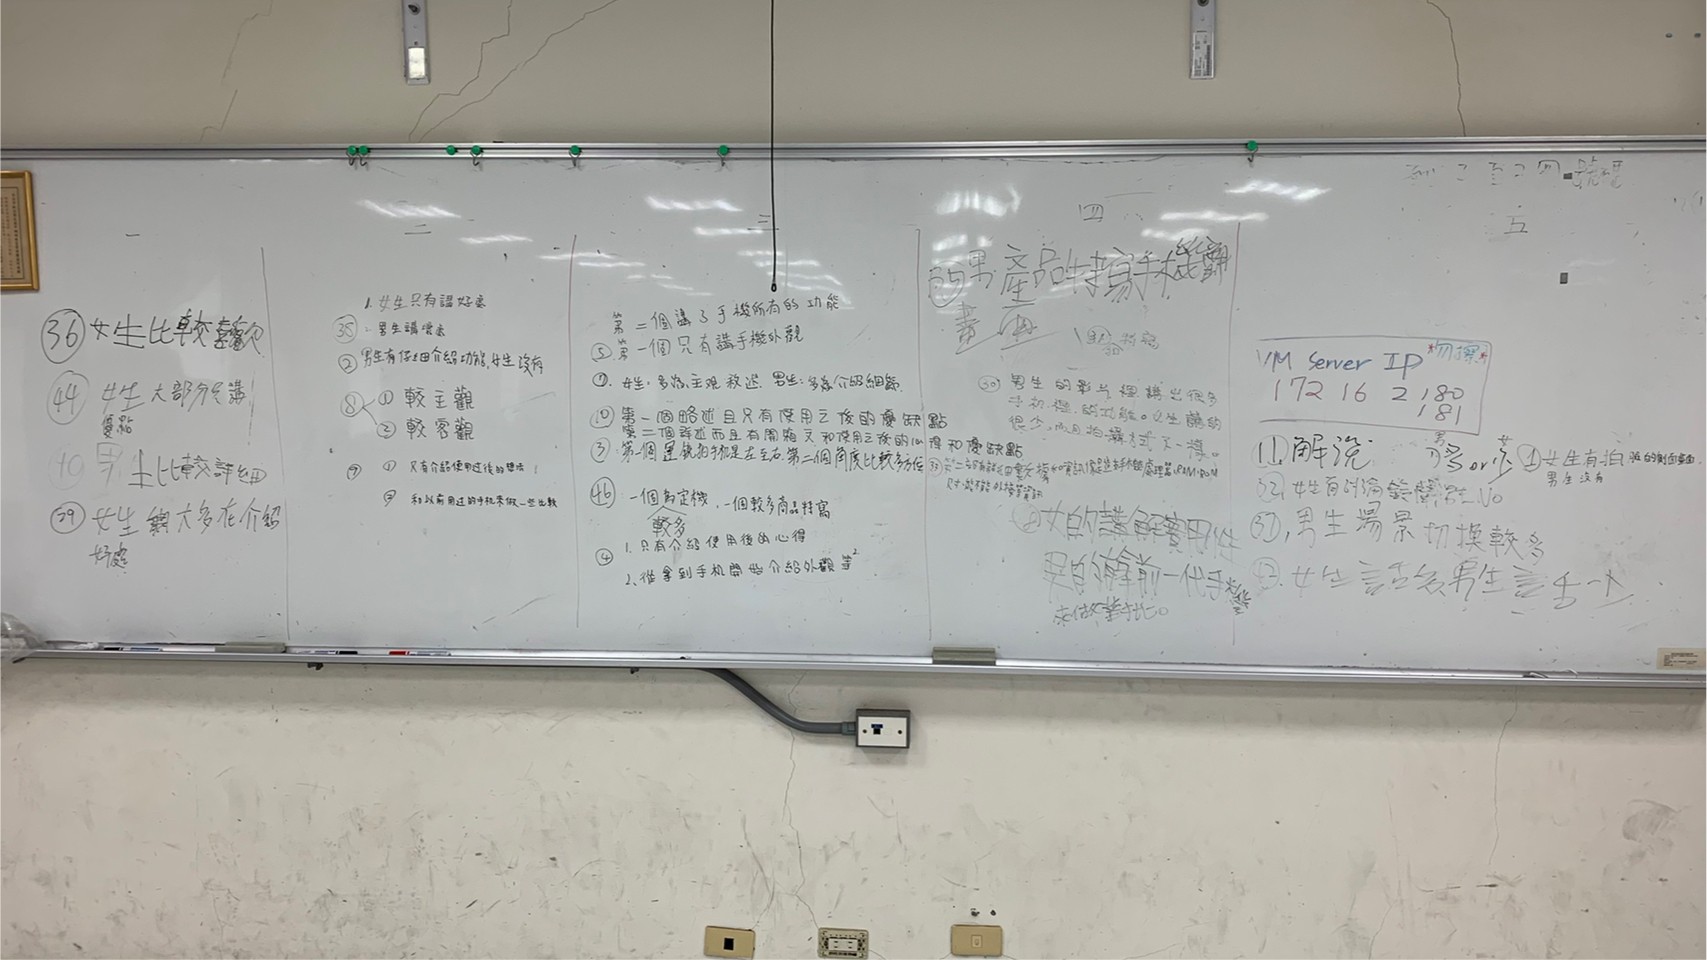 一
36 女生比較喜歡
44 女生大部分只講
優點
40 男生比較詳細
29 女生 大多在介紹
好處
二
1. 女生只有講好處
35
2. 男生講壞處
2 男生有仔細介紹功能,女生沒有
8 ① 較主觀
② 較客觀
9 ① 只有介紹使用過後的
② 和以前用过的手机來做一些比較
三
第二個講了手機所有的功能
5 第一個只有講手機外觀
7. 女生:多為主觀敘述 男生:多為介紹細節
10 第一個略述且只有使用之後的優缺點
第二個詳述而且有開箱文和使用之後的心得和優缺點
3 第一個運鏡拍手機是左至右,第二個角度比較多方位
46 一個為定機,一個較多商品特寫
較多
4 1. 只有介紹使用後的心得
2. 從拿到手机開始介紹外觀等
四
35 男產品特寫手機
畫面
30 男生的影片裡講出很多
手机裡的功能。女生講的
很少,而且拍攝方式不一樣。
女的講解實用性
男的拿前一代手機
來做對比。
五
號碼
VM Server IP *勿擦*
172 16 2 180
181
11 解說 男 多 or 女 少
1 女生有拍 的側面畫面
男生沒有
32. 女生有 男生No
37. 男生場景切換較多
女生 男生